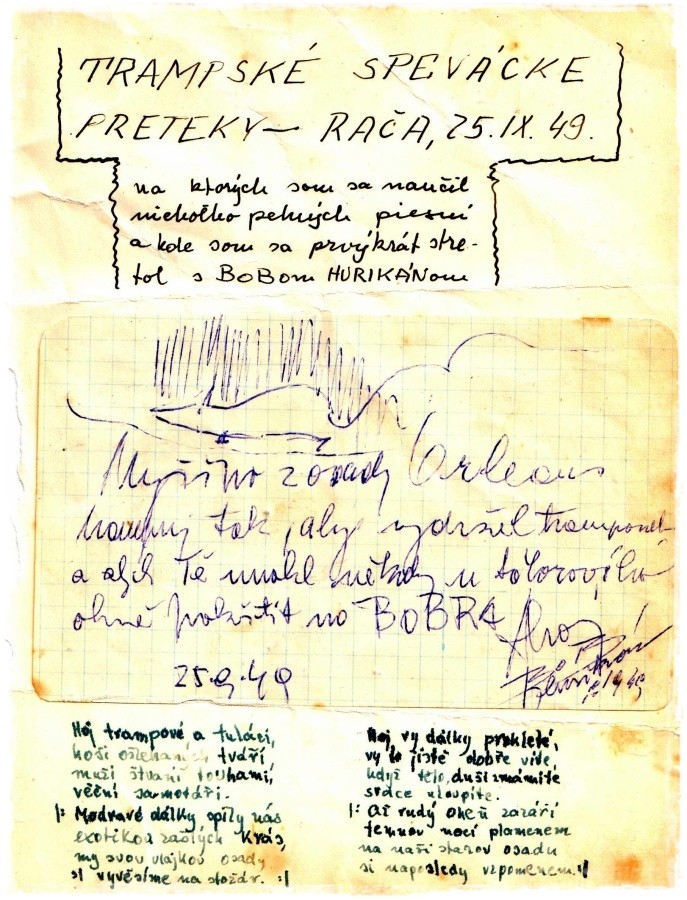 TRAMPSKÉ SPEVÁCKE
PRETEKY — RAČA, 25.IX.49.
na ktorých som sa naučil
niekoľko pekných piesní
a kde som sa prvýkrát stre-
tol s BOBom HURIKÁNom
z osady Orleans
tak, aby vydržel
a abych Tě mohl někdy u táborového
ohně pokřtít na BOBRA Ahoj!
25.9.49
Hoj trampové a tuláci,
hoši ošlehaných tváří
muži štvaní touhami,
věční samotáři.
|: Modravé dálky opily nás
exotikou zašlých krás,
my svou vlajkou osady
si vyvěsíme na stožár. :|
Hoj vy dálky prokleté,
vy to jistě dobře víte,
když tělo, duši zmámíte
srdce uloupíte.
|: Až rudý oheň zazáří
temnou nocí plamenem
na naši starou osadu
si naposledy vzpomenem. :|